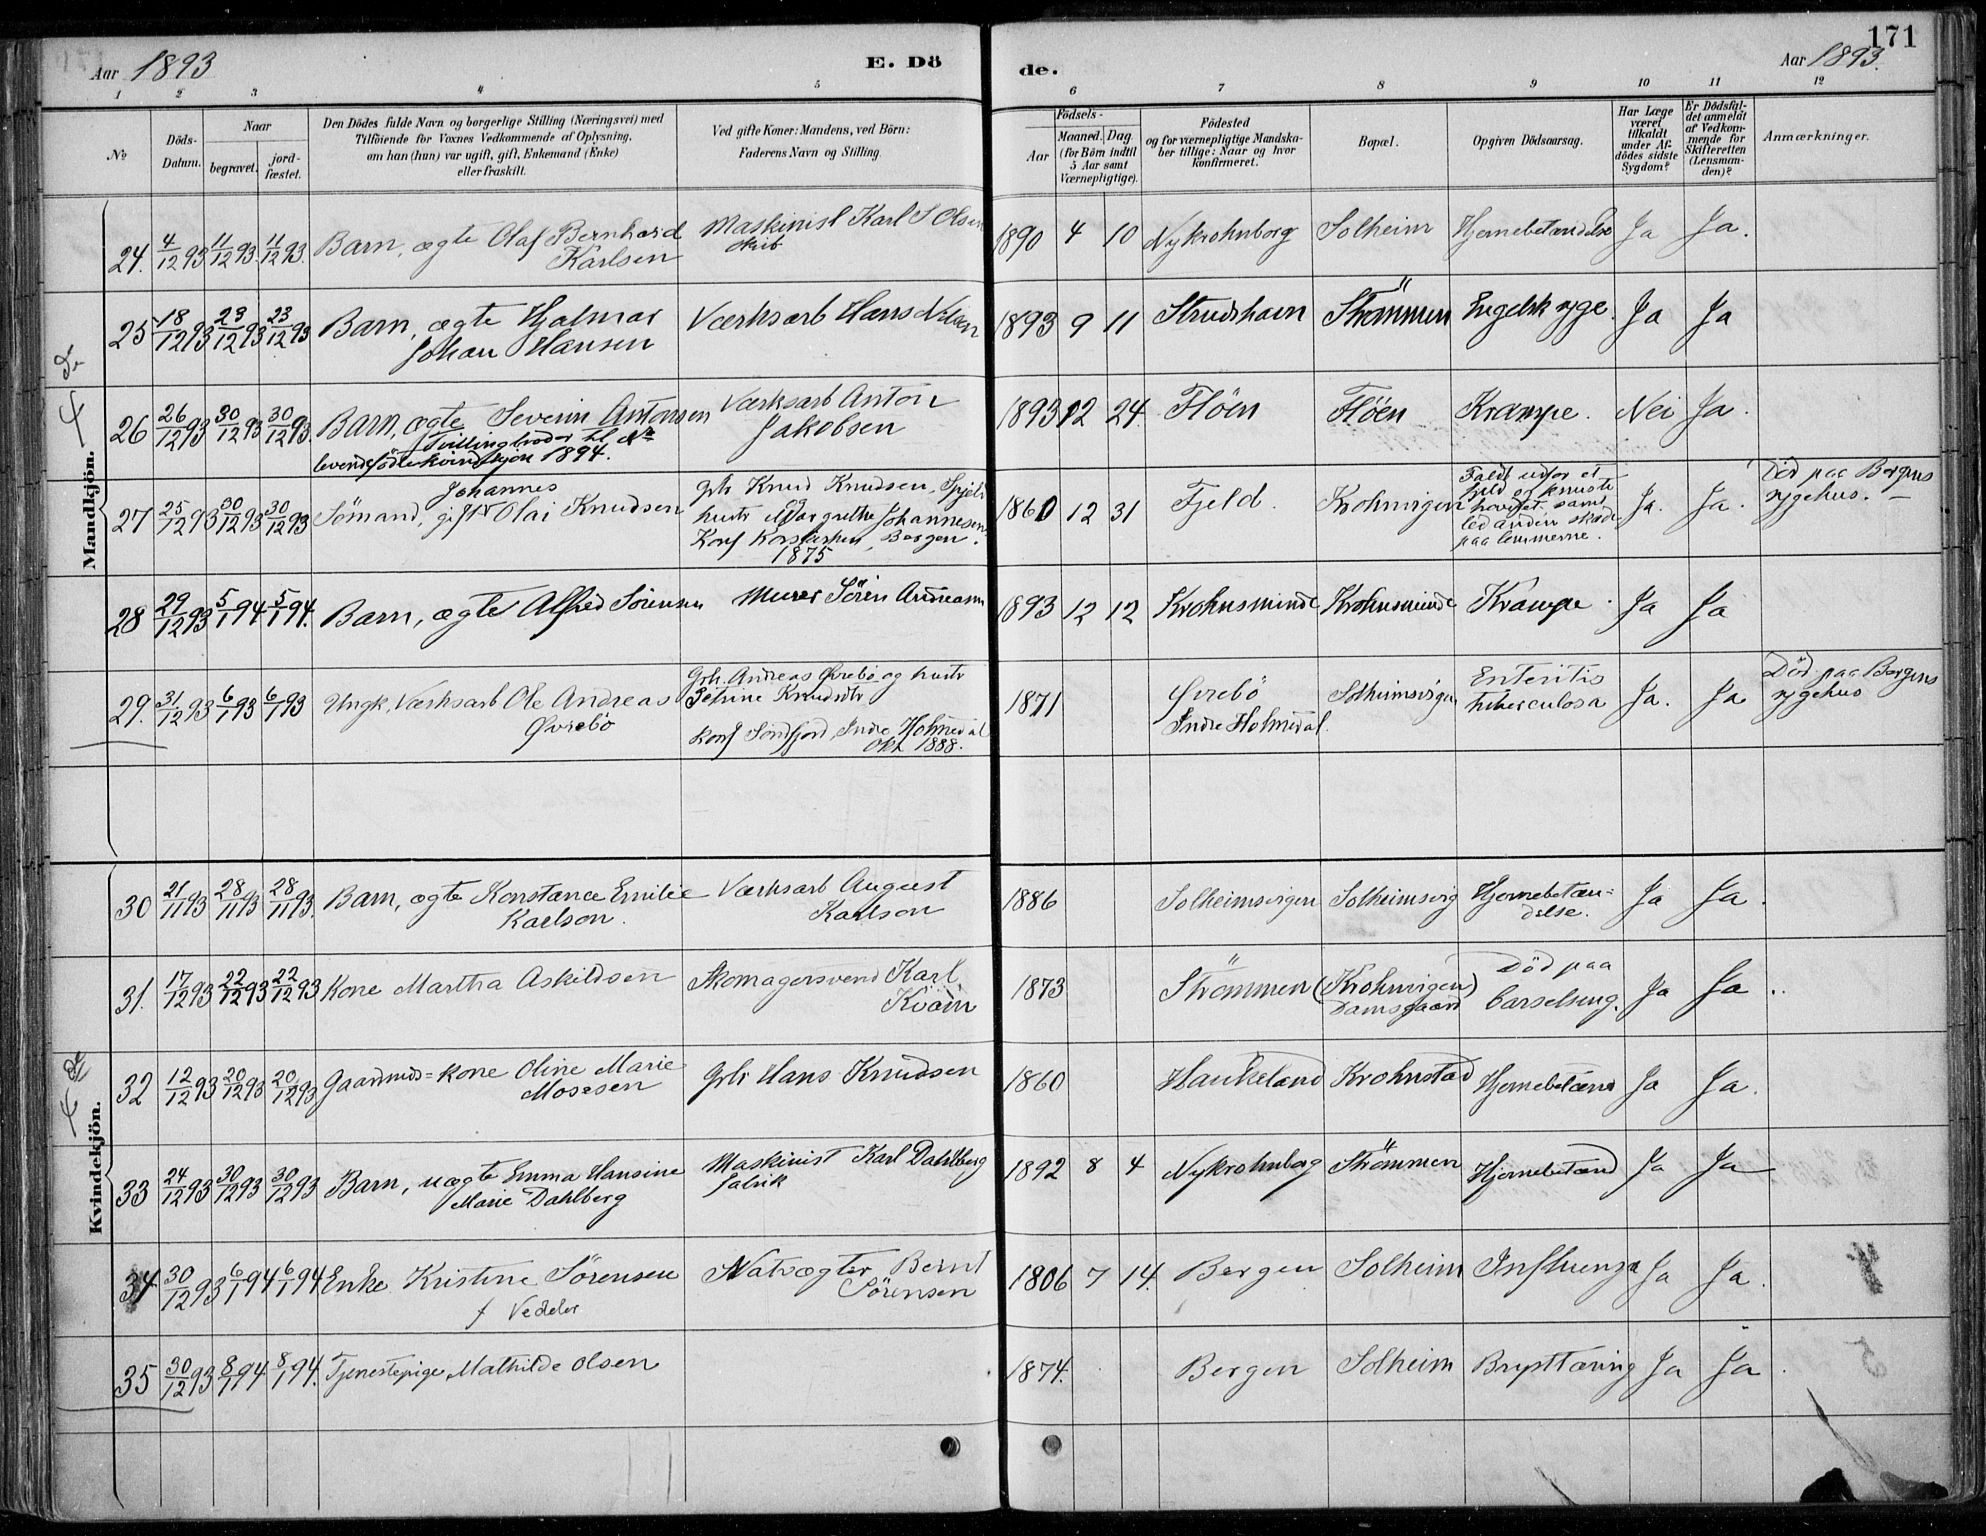 171
Aar 1893 E. Dö de. Aar 1893.
1 2 3 4 5 6 7 8 9 10 11 12
№ Döds-Datum. Naar begravet. jord-fæstet. Den Dödes fulde Navn og borgerlige Stilling (Næringsvei) med Tilföiende for Voxnes Vedkommende af Oplysning, om han (hun) var ugift, gift, Enkemand (Enke) eller fraskilt. Ved gifte Koner: Mandens, ved Börn: Faderens Navn og Stilling. Födsels- Aar Maaned. Dag (for Börn indtil 5 Aar samt Værnepligtige). Födested og for værnepligtige Mandskaber tillige: Naar og hvor konfirmeret. Bopæl. Opgiven Dödsaarsag. Har Læge været tilkaldt under Afdödes sidste Sygdom? Er Dödsfaldet anmeldt af Vedkommende for Skifteretten (Lensmanden)? Anmærkninger.
Mandkjön.
24. 4/12 93 11/12 93. 11/12 93. Barn, ægte Olaf Bernhard Karlsen Maskinist Karl S Olsen skib 1890 4 10 Nykrohnborg Solheim Hjernebetændelse Ja Ja.
25 18/12 93 23/12 93 23/12 93 Barn, ægte Hjalmar Johan Hansen Værksarb Hans Nilsen 1893 9 11 Strudshavn Strömmen Engelsk syge. Ja Ja
26 26/12 93 30/12 93 30/12 93. Barn, ægte Severin Antonsen Tvillingbroder til № levendefödte kvindekjön 1894. Værksarb Anton Jakobsen 1893 12 24. Flöen Flöen Krampe. Nei Ja.
27 25/12 93 30/12 93 30/12 93 Sömand, gift Johannes Olai Knudsen Grb Knud Knudsen, og hustr Margrethe Johannesen Konf Korskirken, Bergen. 1875 1860 12 31 Fjeld. Krohnvigen Faldt udfor et fjeld og knuste hovedet samt led anden skade paa lemmerne. Ja. Ja. Död paa Bergens sygehus.
28 29/12 93 5/1 94 5/1 94. Barn, ægte Alfred Sörensen Murer Sören Andreasen 1893 12 12 Krohnsminde Krohnsminde Krampe. Ja Ja
29. 31/12 93 6/1 93 6/1 93 Ungk, Værksarb Ole Andreas Øvrebö Grb. Andreas Øvrebö og hustr Petrine Knudsdtr konf Söndfjord, Indre Holmedal Okt 1888. 1871 Øvrebö Indre Holmedal. Solheimsvigen Enteritis tuberculosa Ja. Ja Död paa Bergens sygehus
Kvindekjön.
30 21/11 93 28/11 93 28/11 93. Barn, ægte Konstance Emilie Karlson. Værksarb August Karlson 1886 Solheimsvigen Solheimsvig Hjernebetændelse. Ja Ja.
31. 17/12 93 22/12 93 22/12 93 Kone Martha Askildsen Skomagersvend Karl Kvam 1873 Strömmen (Krohnvigen) Damsgaard Död paa barselseng. Ja Ja
32 12/12 93 20/12 93 20/12 93 Gaardmds=kone Oline Marie Mosesen Grb Hans Knudsen 1860 Haukeland Krohnstad Hjernebetænd Ja Ja.
33 24/12 93 30/12 93 30/12 93 Barn, uægte Emma Hansine Marie Dahlberg Maskinist Karl Dahlberg fabrik 1892 8 4 Nykrohnborg Strömmen Hjernebetænd Ja Ja
34 30/12 93 6/1 94 6/1 94 Enke Kristine Sörensen f Vedeler Natvægter Bernt Sörensen 1806 7 14. Bergen Solheim Influenza Ja Ja.
35 30/12 93 8/1 94 8/1 94. Tjenestepige Mathilde Olsen 1874. Bergen Solheim Brysttæring Ja Ja